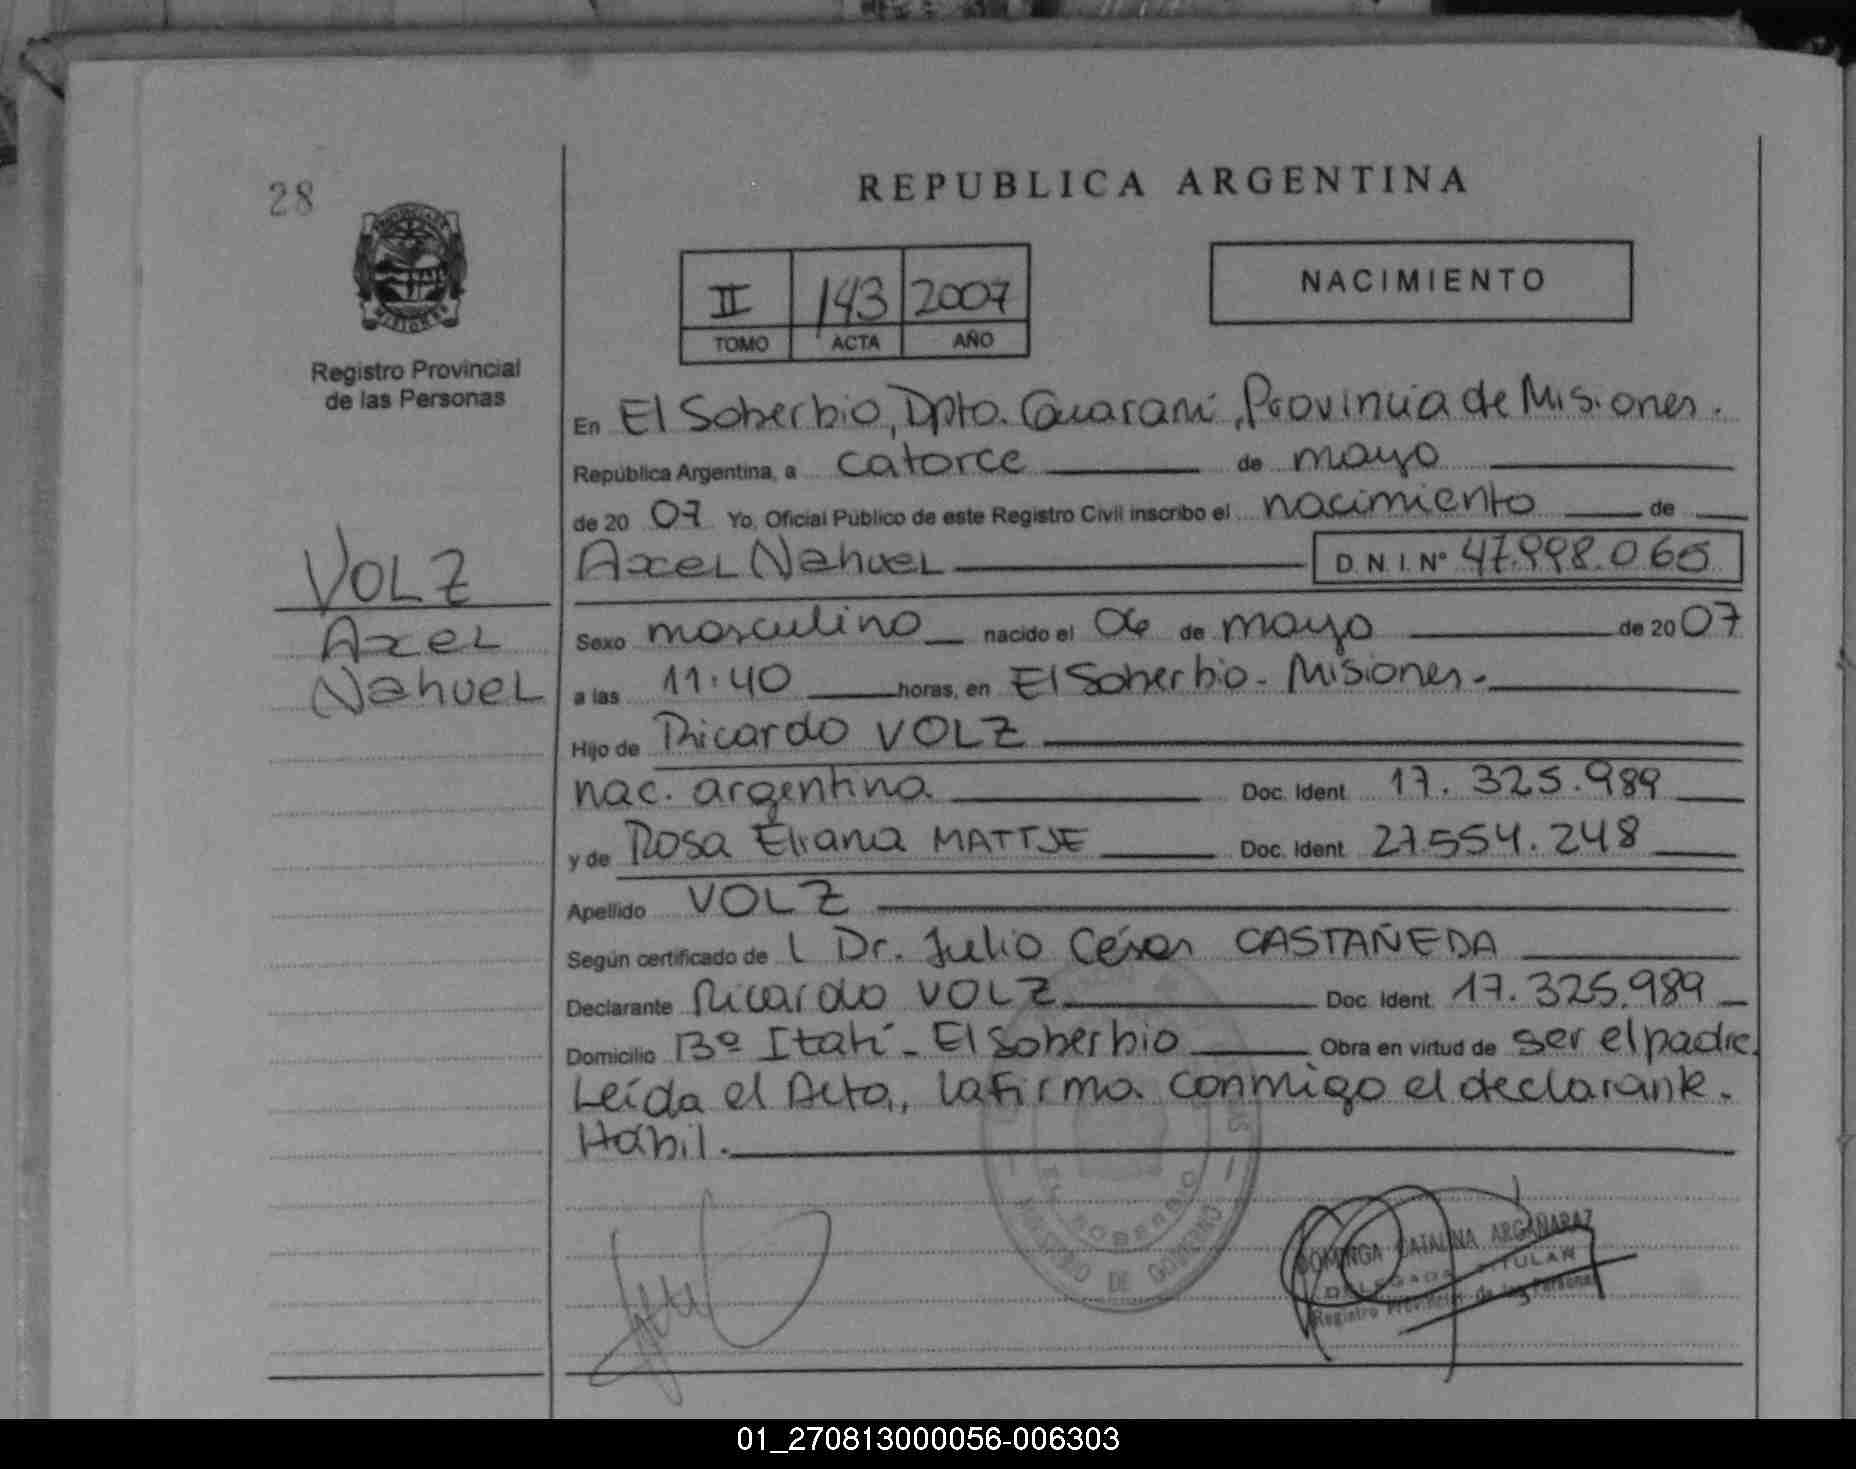 28
REPUBLICA ARGENTINA
NACIMIENTO
II 143 2007
TOMO ACTA AÑO
PROVINCIA DE
MISIONES
Registro Provincial
de las Personas
En El Soberbio, Dpto. Guaraní, Provincia de Misiones.
República Argentina, a catorce de mayo
de 20 07 Yo, Oficial Público de este Registro Civil inscribo el nacimiento de
VOLZ
Axel
Nahuel
Axel Nahuel D.N.I. Nº 47.998.065
Sexo masculino nacido el 06 de mayo de 20 07
a las 11:40 horas, en El Soberbio - Misiones.
Hijo de Ricardo VOLZ
nac. argentina Doc. Ident. 17.325.989
y de Rosa Eliana MATTJE Doc. Ident. 27.554.248
Apellido VOLZ
Según certificado de l Dr. Julio César CASTAÑEDA
Declarante Ricardo VOLZ Doc. Ident. 17.325.989
Domicilio Bº Itatí - El Soberbio Obra en virtud de ser el padre.
Leída el Acta, la firma conmigo el declarante.
Hábil.
EL SOBERBIO
MINISTERIO DE GOBIERNO
DOMINGA CATALINA ARGAÑARAZ
DELEGADA TITULAR
Registro Provincial de las Personas
01_270813000056-006303